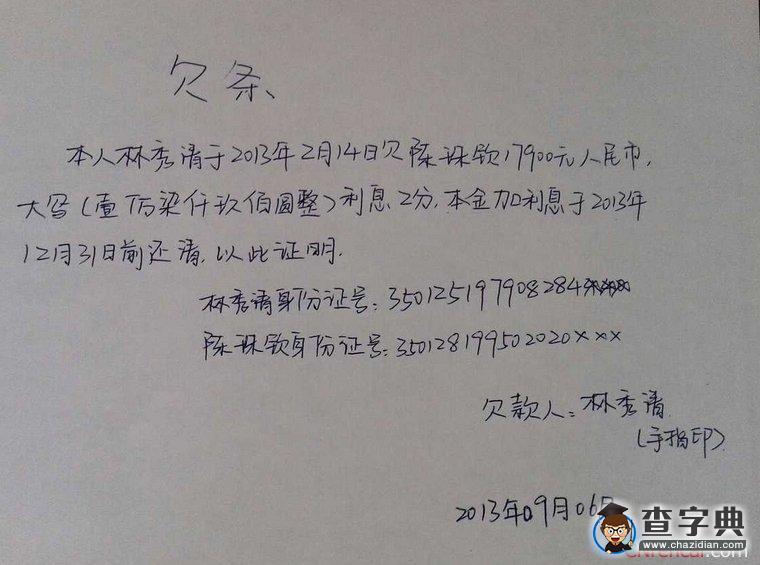 欠条
本人林秀清于2013年2月14日欠陈珠钦17900元人民币,
大写(壹万柒仟玖佰圆整)利息2分,本金加利息于2013年
12月31日前还清,以此证明.
林秀清身份证号:350125197908284
陈珠钦身份证号:350128199502020×××
欠款人:林秀清
(手指印)
2013年09月06日
查字典
www.chazidian.com